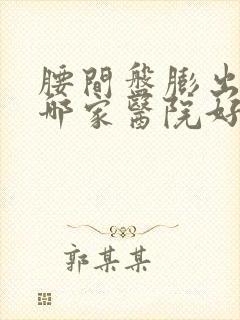 腰間盤膨出
哪家醫院好
郭某某